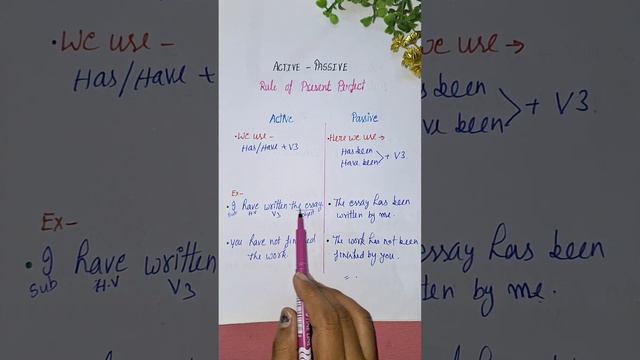 ACTIVE - PASSIVE
Rule of Present Perfect
Active
• We use -
Has/Have + V3
Ex-
• I have written the essay.
Sub H.V V3
• You have not finished
the work.
Passive
• Here we use →
Has been
Have been > + V3.
• The essay has been
written by me.
• The work has not been
finished by you.
• We use -
Has/Have +
Ex-
• I have written
Sub H.V V3
we use →
been
been > + V3.
essay has been
by me.